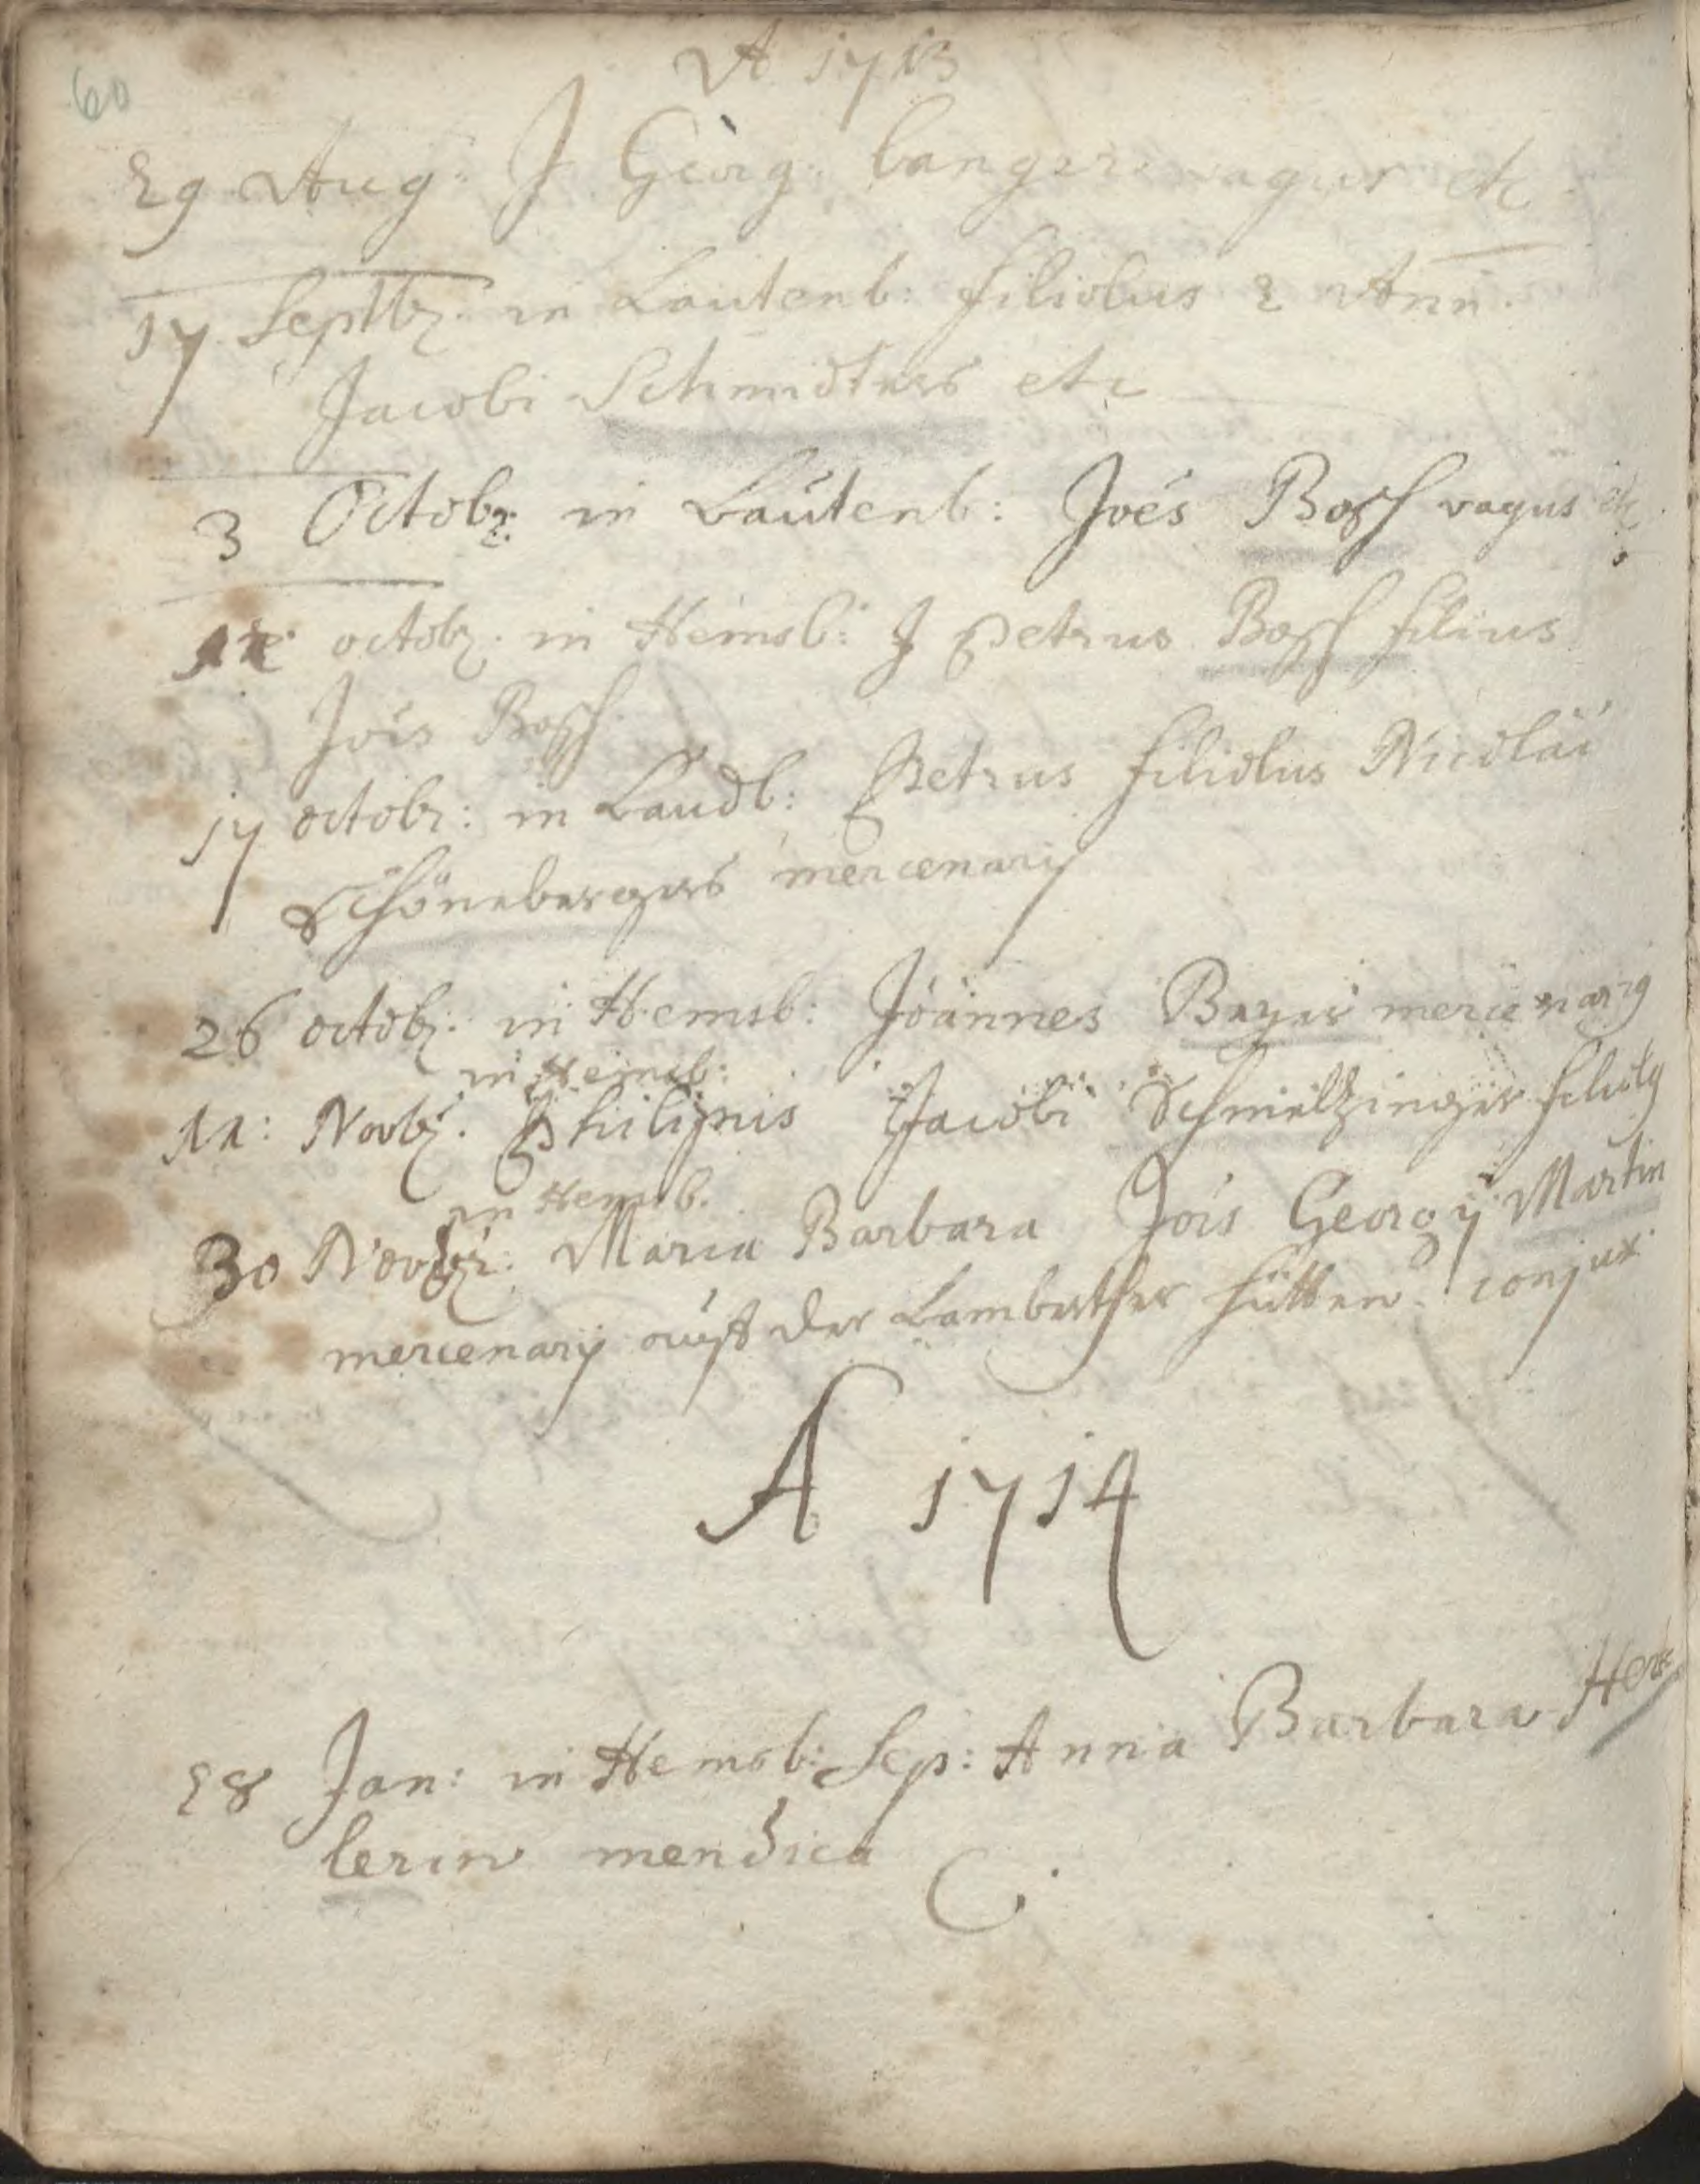 60
A 1713
29 Aug: J Georg: Langer vagus etc
17 Septbr. in Lautenb: filiolus 2 Ann.
Jacobi Schmidters etc
3 Octobr: in Lautenb: Joës Bosch vagus etc
octobr. in Hemsb: J Petrus Bosch filius
Jois Bosch
17 octobr: in Laudb: Petrus filiolus Nicolai
Schönebergers mercenarij
26 octobr. in Hemsb: Joannes Bayer mercenarij
in Hemsb:
11: Novbr. Philippus Jacobi Schmeltzinger filiolg
in Hemsb.
30 Novbr: Maria Barbara Jois Georgij Martin
mercenarij auff der Lamberther hütten conjux
A 1714
28 Jan: in Hemsb: Sep: Anna Barbara
lerin mendica